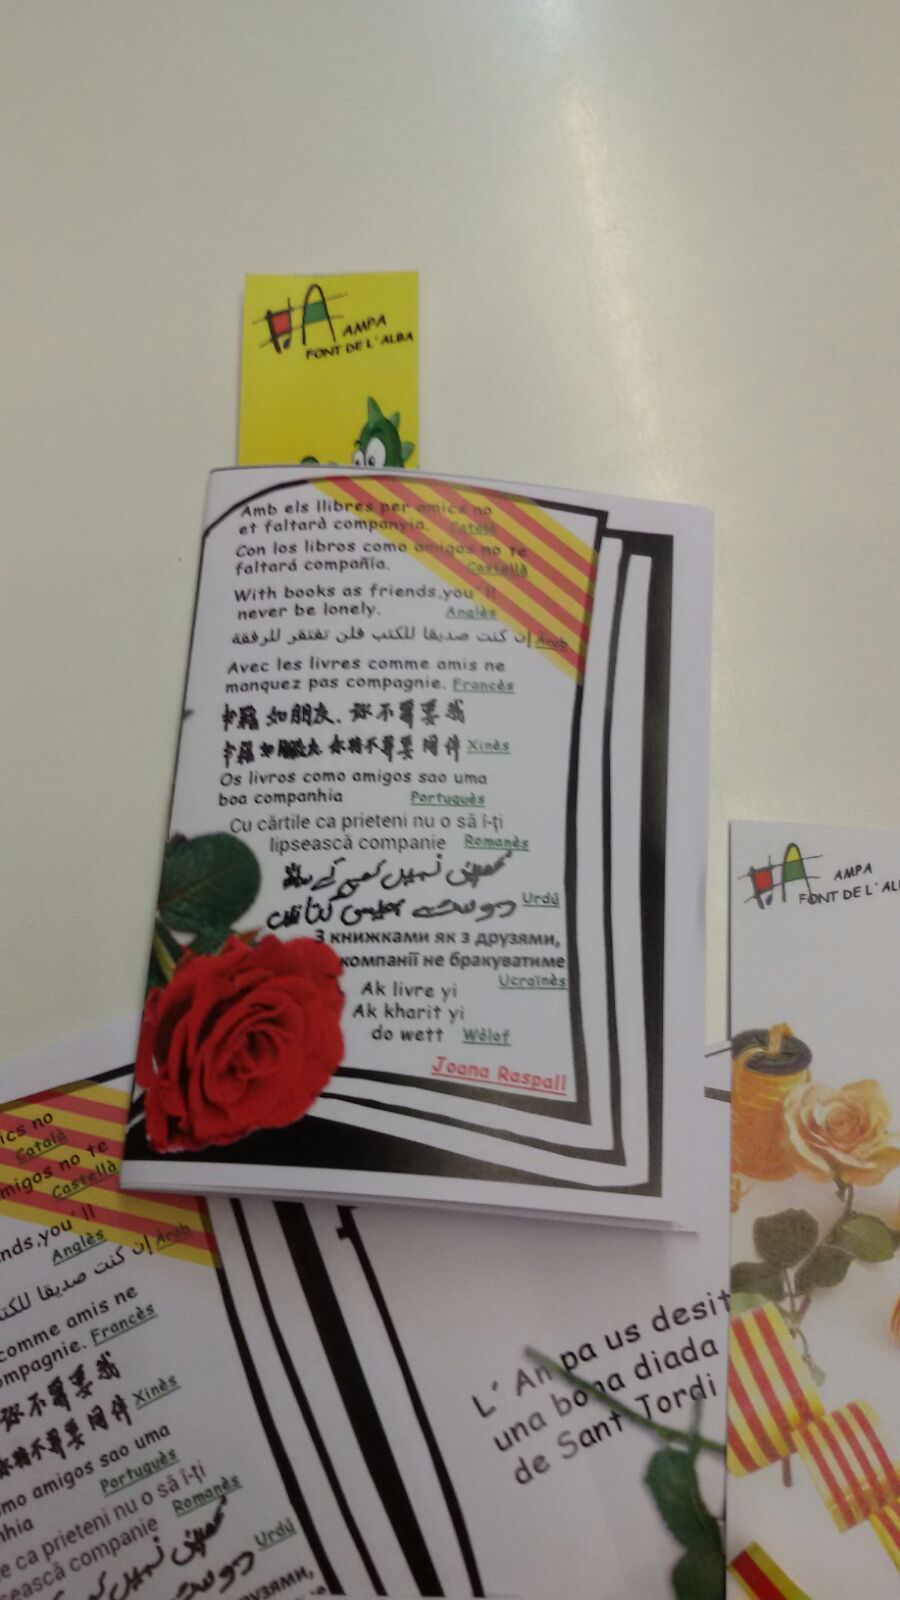 AMPA
FONT DE L´ALBA
Amb els llibres per amics no
et faltarà companyia. Català
Con los libros como amigos no te
faltará compañía. Castellà
With books as friends,you´ll
never be lonely. Anglès
إن كنت صديقا للكتب فلن تفتقر للرفقة Àrab
Avec les livres comme amis ne
manquez pas compagnie. Francès
如朋友. 你不需要我
如朋友 你将不需要同伴 Xinès
Os livros como amigos sao uma
boa companhia Portuguès
Cu cărtile ca prieteni nu o să î-ți
lipsească companie Romanès
Urdú
З книжками як з друзями,
компанії не бракуватиме
Ucraïnès
Ak livre yi
Ak kharit yi
do wett Wòlof
Joana Raspall
AMPA
FONT DE L´AL
ics no
Català
migos no te
Castellà
nds,you´ll
Anglès
إن كنت صديقا للكت Àrab
comme amis ne
ompagnie. Francès
你不需要我
Xinès
你将不需要同伴
mo amigos sao uma
nhia Portuguès
e ca prieteni nu o să î-ți
sească companie Romanès
Urdú
рузями,
L´Ampa us desit
una bona diada
de Sant Jordi